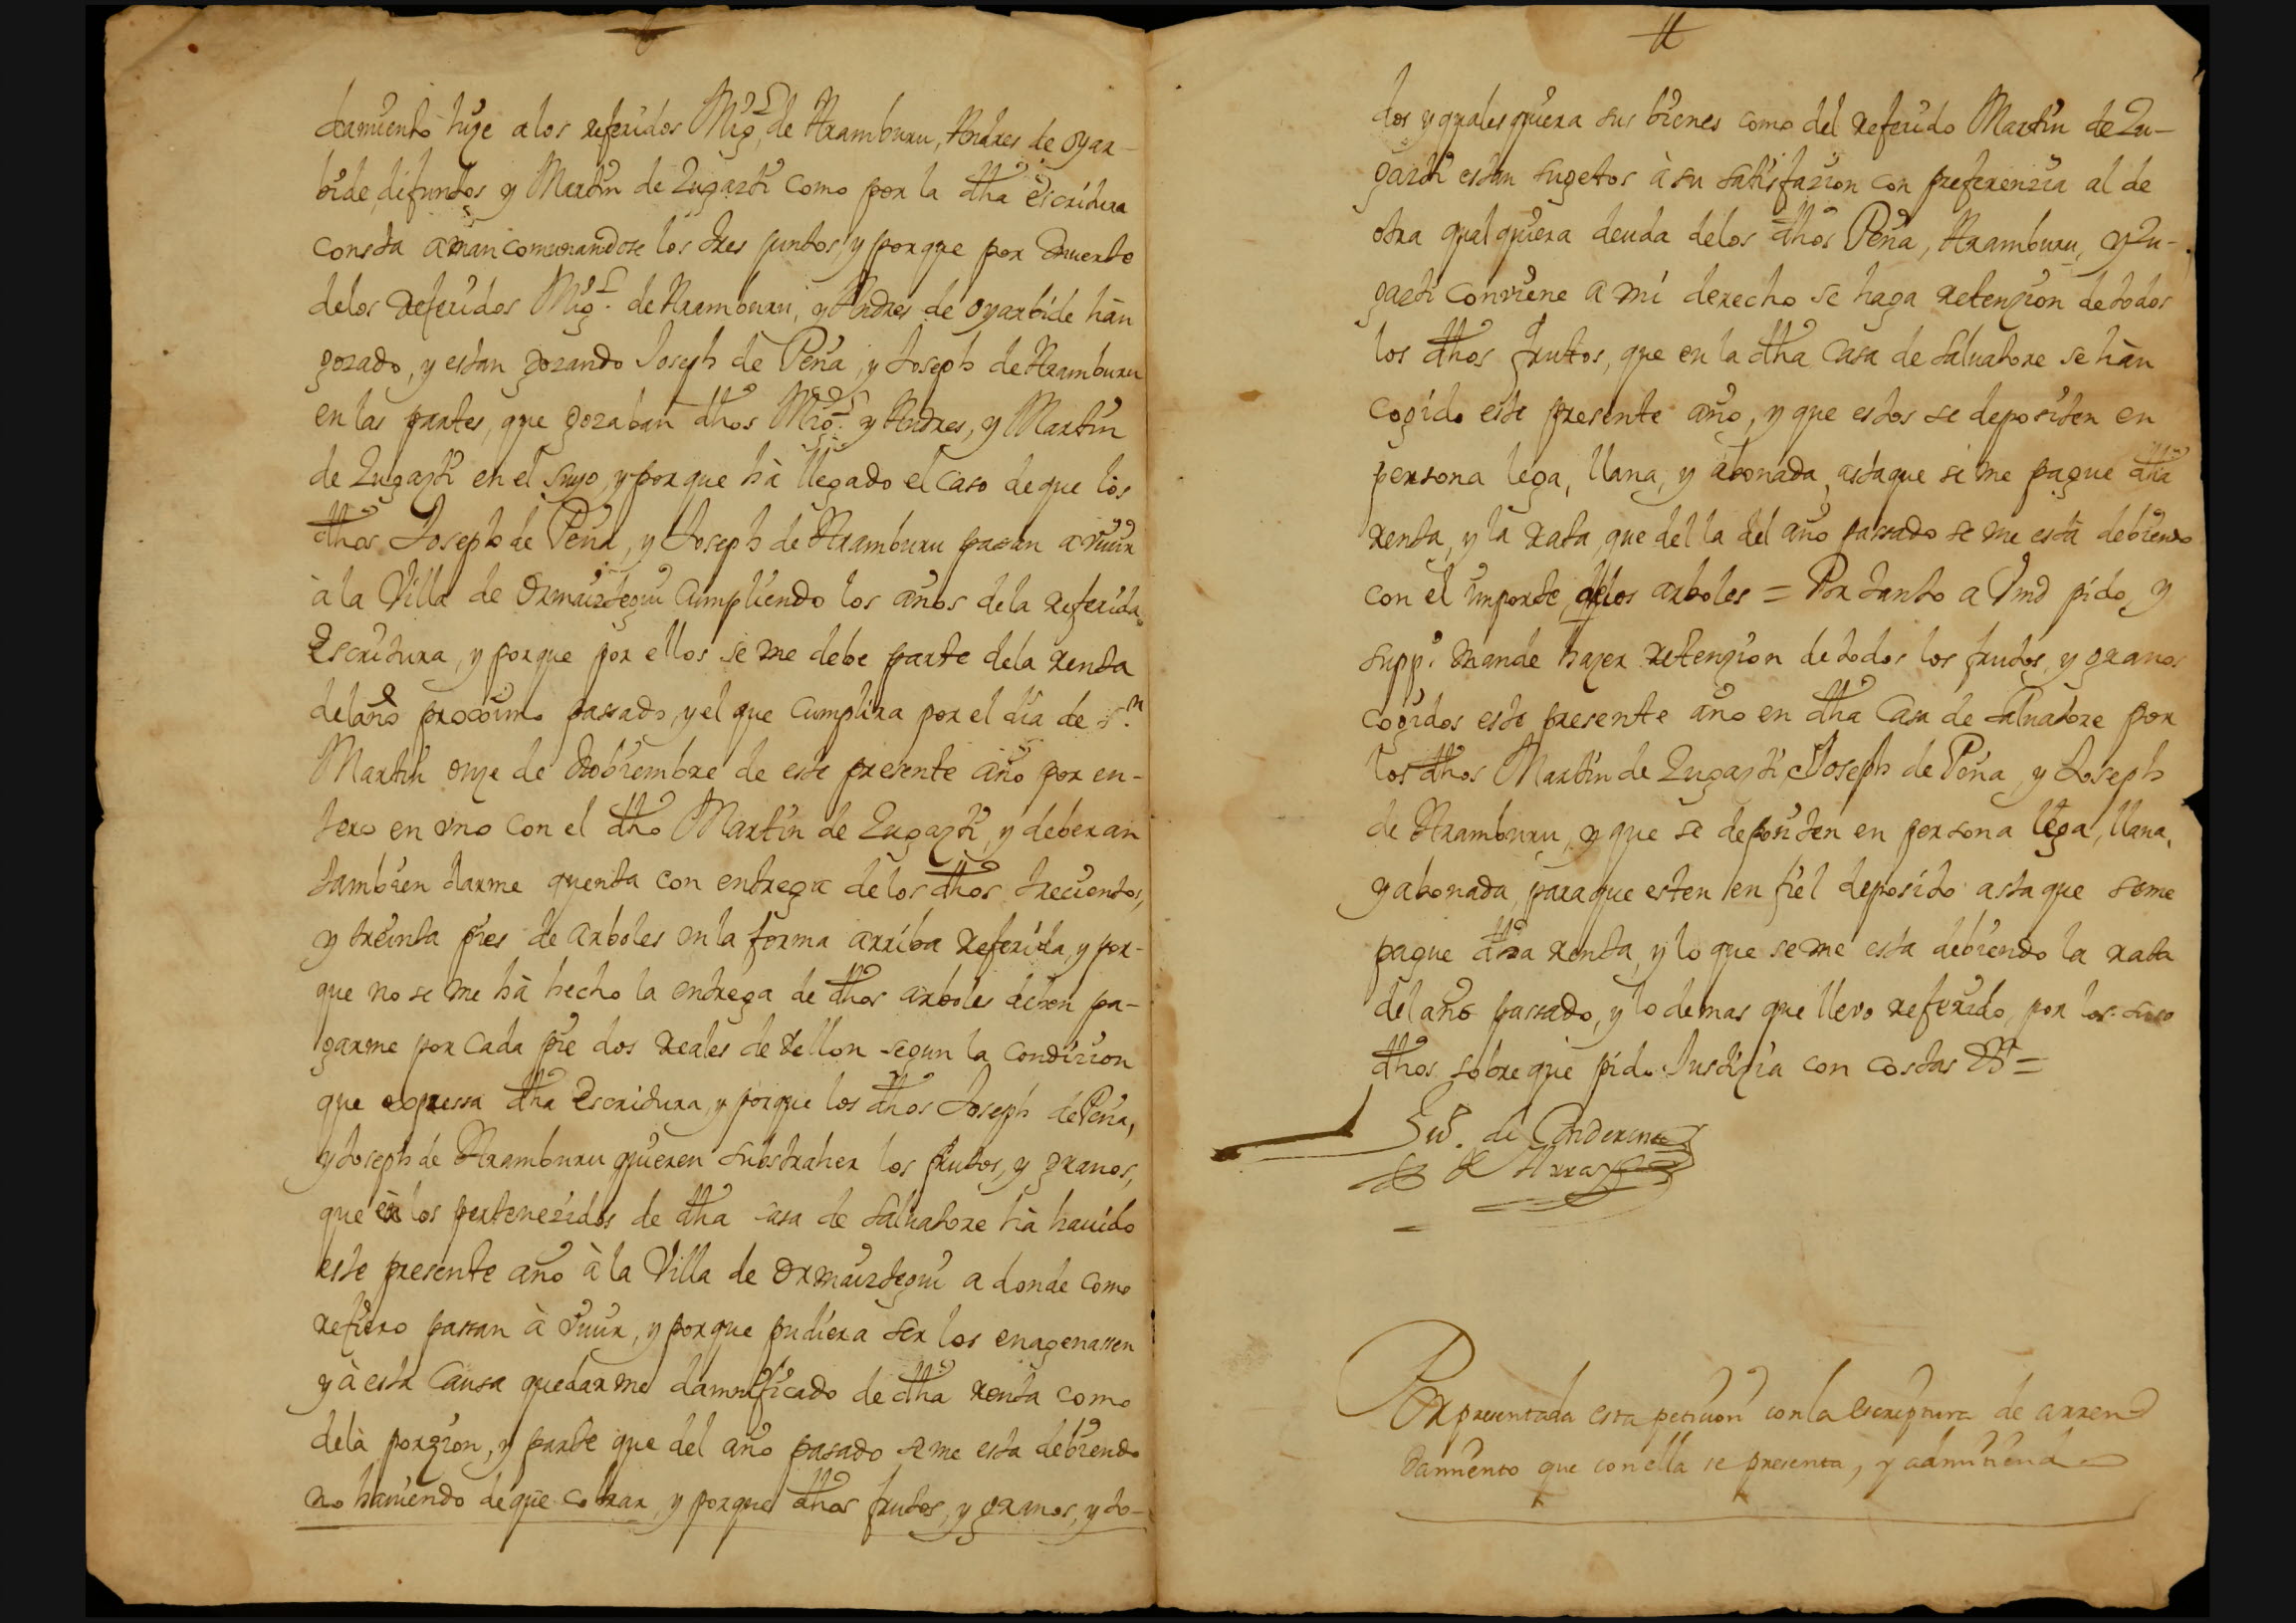 damiento hize a los referidos Mig.l de Aramburu, Andres de oyar-
bide, difuntos y Martin de Zugazti como por la dha escritura
consta amancomunandose los tres juntos, y porque por muerte
delos Referidos Mig.l de Aramburu, y Andres de oyarbide hàn
gozado, y estan gozando Joseph de Peña, y Joseph de Aramburu
en las partes, que gozaban dhos Mig.l y Andres, y Martin
de Zugazti en el suyo, y porque hà llegado el caso de que los
dhos Joseph de Peña, y Joseph de Aramburu pasan a viuir
à la Villa de Ormaiztegui cumpliendo los años dela referida
Escritura, y porque por ellos se me debe parte dela renta
del año proximo passado, y el que cumplira por el dia de S.n
Martin onze de Nobiembre de este presente año por en-
tero en vno con el dho Martin de Zugazti, y deberan
tambien darme quenta con entrega delos dhos trecientos,
y treinta pies de arboles en la forma arriba referida, y por-
que no se me hà hecho la entrega de dhos arboles deben pa-
garme por cada pie dos reales de vellon segun la condizion
que expressa dha Escritura, y porque los dhos Joseph de Peña,
y Joseph de Aramburu quieren substraher los frutos, y granos,
que en los pertenezidos de dha casa de Saluatore hà hauido
este presente año à la Villa de Ormaiztegui a donde como
refiero passan à viuir, y porque pudiera ser los enagenassen
y à esta causa quedarme damnificado de dha renta como
dela porzion, y parte que del año pasado se me esta debiendo
no hauiendo de que cobrar, y porque dhos frutos, y granos, y to-
dos y qualesquiera sus bienes como del referido Martin de Zu-
gazti estan sugetos à su satisfazion con preferenzia al de
otra qualquiera deuda delos dhos Peña, Aramburu, y Zu-
gazti conviene a mi derecho se haga retenzion de todos
los dhos frutos, que en la dha Casa de Saluatore se hàn
cogido este presente año, y que estos se depositen en
persona lega, llana, y abonada, asta que se me pague dha
renta, y la rata, que della del año passado se me està debiendo
con el importe delos arboles = Por tanto a Vmd pido, y
supp.co mande hazer retenzion de todos los frutos, y granos
cogidos este presente año en dha Casa de Saluatore por
los dhos Martin de Zugazti, Joseph de Peña, y Joseph
de Aramburu, y que se depositen en persona lega, llana,
y abonada, para que esten en fiel deposito asta que se me
pague dha renta, y lo que se me esta debiendo la rata
del año passado, y lo demas que llevo referido, por los suso
dhos sobre que pido Justizia con costas &.a =
Por presentada esta peticion con la escriptura de arren
damiento que con ella se presenta, y admitiend